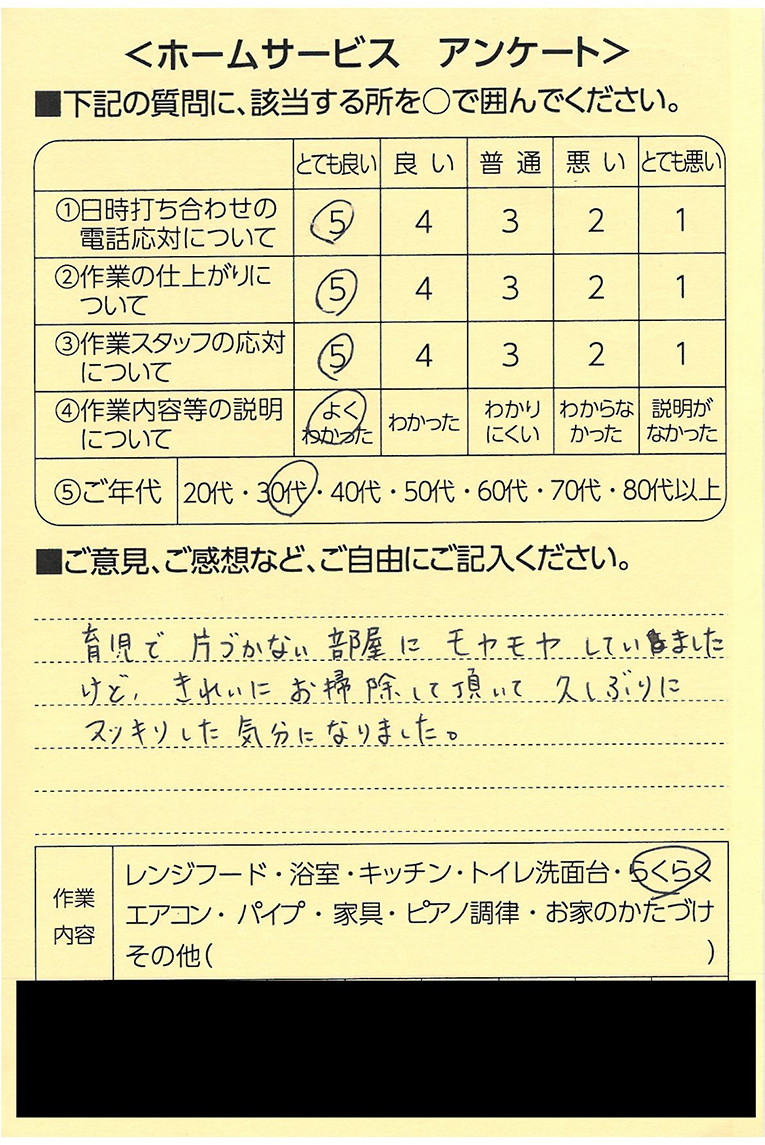 ＜ホームサービス　アンケート＞
■下記の質問に、該当する所を○で囲んでください。
とても良い 良い 普通 悪い とても悪い
①日時打ち合わせの
電話応対について 5 4 3 2 1
②作業の仕上がりに
ついて 5 4 3 2 1
③作業スタッフの応対
について 5 4 3 2 1
④作業内容等の説明 よく わかり わからな 説明が
について わかった わかった にくい かった なかった
⑤ご年代 20代・30代・40代・50代・60代・70代・80代以上
■ご意見、ご感想など、ご自由にご記入ください。
育児で 片づかない 部屋に モヤモヤ していました
けど、きれいに お掃除して頂いて 久しぶりに
スッキリした 気分になりました。
作業
内容
レンジフード・浴室・キッチン・トイレ洗面台・らくらく
エアコン・パイプ・家具・ピアノ調律・お家のかたづけ
その他(　)